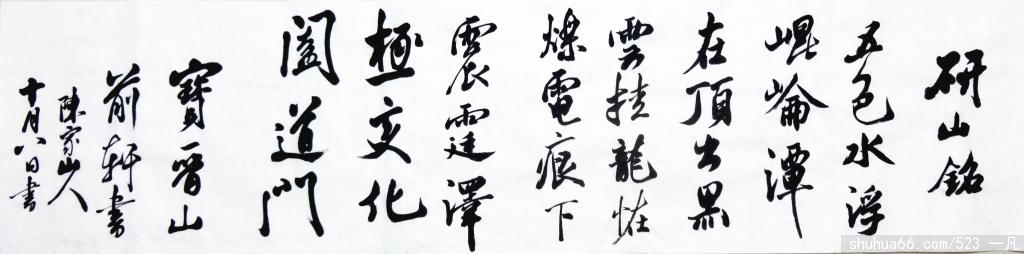 研山銘
五色水浮
崐崘潭
在頂出黑
雲挂龍怪
爍電痕下
震霆澤
極变化
闔道門
寶晉山
前軒書
陳家山人
十月八日書
shuhua66.com/523 一凡